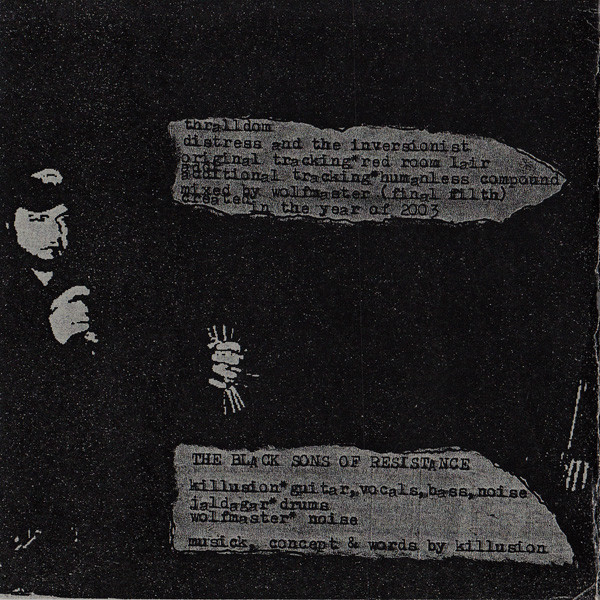 thralldom
distress and the inversionist
original tracking*red room lair
additional tracking*humanless compound
mixed by wolfmaster (final filth)
created
in the year of 2003
THE BLACK SONS OF RESISTANCE
killusion*guitar,vocals,bass,noise
jaldagar*drums
wolfmaster* noise
musick, concept & words by killusion